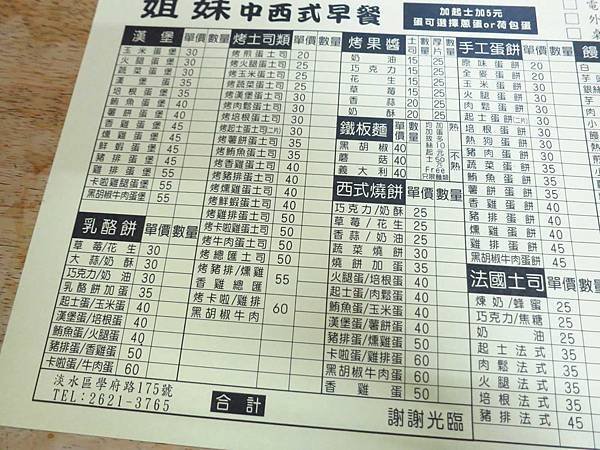 姐妹中西式早餐
加起士加5元
蛋可選擇蔥蛋or荷包蛋
漢堡 單價 數量
玉米蛋堡 30
火腿蛋堡 30
蔬菜蛋堡 30
漢堡蛋 35
培根蛋堡 35
鮪魚蛋堡 40
薯餅蛋堡 45
香雞蛋堡 45
燻雞蛋堡 45
鮮蝦蛋堡 45
豬排蛋堡 45
雞排蛋堡 55
卡啦雞腿蛋堡 55
黑胡椒牛肉蛋堡 55
乳酪餅 單價 數量
草莓/花生 30
大蒜/奶酥 30
巧克力/奶油 30
乳酪餅加蛋 35
起士蛋/玉米蛋 40
漢堡蛋/培根蛋 40
鮪魚蛋/火腿蛋 40
豬排蛋/香雞蛋 50
卡啦蛋/牛肉蛋 60
淡水區學府路175號
TEL:2621-3765
烤土司類 單價 數量
烤煎蛋土司 20
烤火腿蛋土司 25
烤玉米蛋土司 25
烤蔬菜蛋土司 25
烤漢堡蛋土司 30
烤肉鬆蛋土司 30
烤培根蛋土司 30
烤起士蛋土司(二片) 30
烤薯餅蛋土司 35
烤鮪魚蛋土司 35
烤香雞蛋土司 40
烤豬排蛋土司 40
烤燻雞蛋土司 40
烤鮮蝦蛋土司 40
烤雞排蛋土司 50
烤卡啦蛋土司 50
烤牛肉蛋土司 50
烤總匯土司 50
烤豬排/燻雞
香雞總匯 55
烤卡啦/雞排
黑胡椒牛肉 60
合計
烤果醬 土司 數量 厚片 數量
奶油 15 25
巧克力 15 25
花生 15 25
草莓 15 25
香蒜 20 25
奶酥 20 25
鐵板麵 單價 數量
黑胡椒 40
蘑菇 40
義大利 40
熱
不熱
西式燒餅 單價 數量
巧克力/奶酥 25
草莓/花生 25
香蒜/奶油 25
蔬菜燒餅 30
燒餅加蛋 30
火腿蛋/培根蛋 35
起士蛋/肉鬆蛋 35
鮪魚蛋/玉米蛋 35
漢堡蛋/薯餅蛋 35
豬排蛋/燻雞蛋 45
卡啦蛋/雞排蛋 60
黑胡椒牛肉蛋 60
香雞蛋 50
謝謝光臨
手工蛋餅 單價 數量
原味蛋餅 20
全麥蛋餅 20
玉米蛋餅 30
火腿蛋餅 30
肉鬆蛋餅 30
起士蛋餅(二片) 30
培根蛋餅 30
熱狗蛋餅 30
豬肉蛋餅 30
蔬菜蛋餅 30
薯餅蛋餅 35
鮪魚蛋餅 35
香雞蛋餅 40
豬排蛋餅 40
燻雞蛋餅 40
雞排蛋餅 45
黑胡椒牛肉蛋餅 45
法國土司 單價 數量
煉奶/蜂蜜 25
巧克力/焦糖 25
奶油 25
起士法式 35
肉鬆法式 35
火腿法式 35
培根法式 35
豬排法式 45
饅